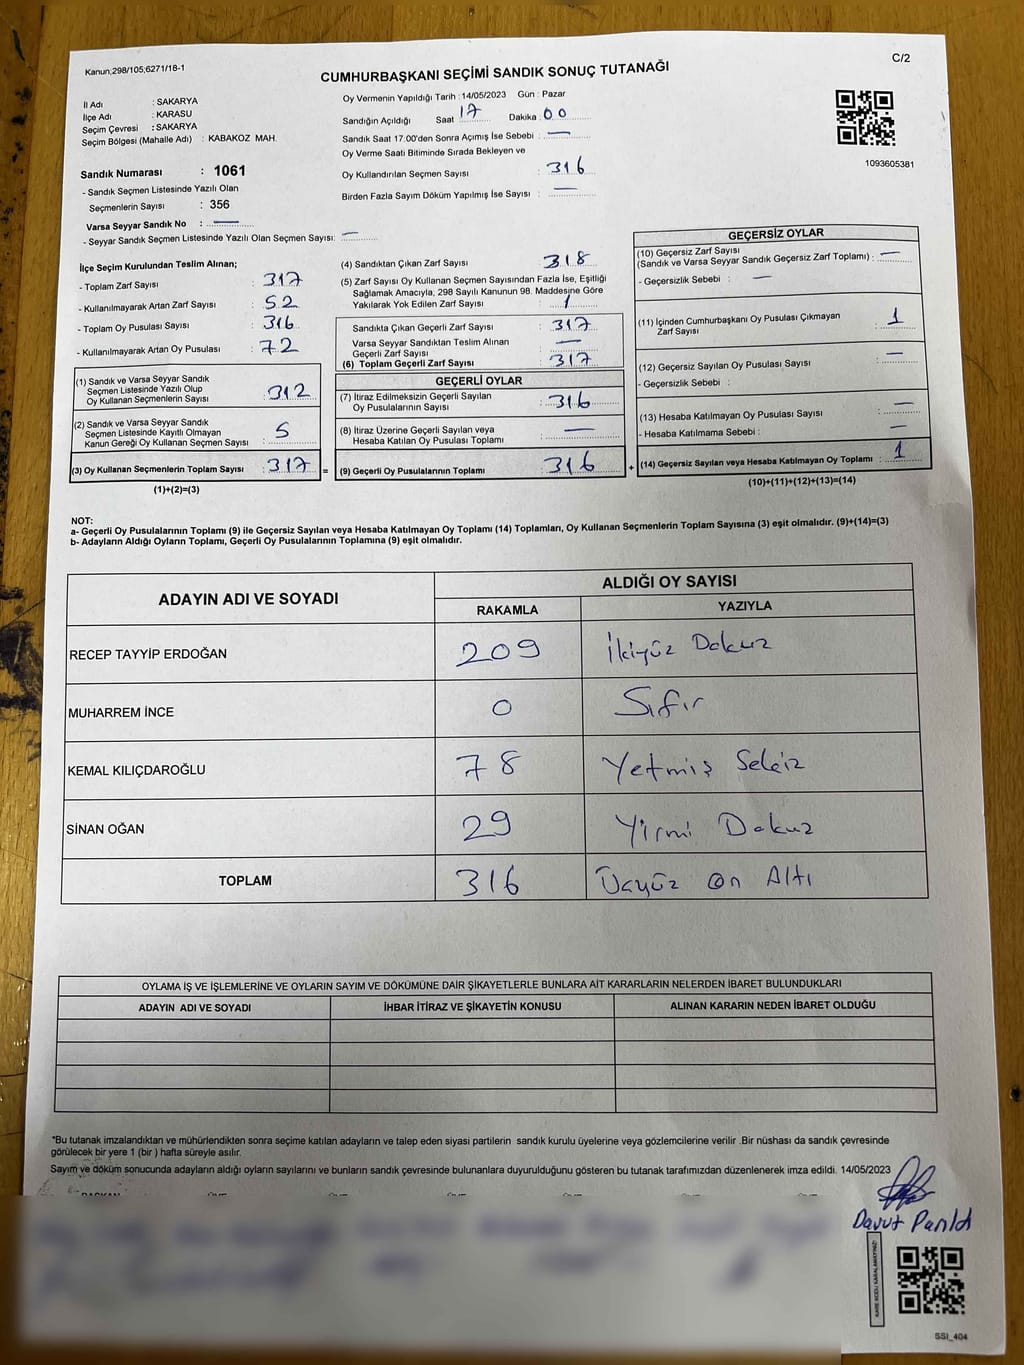 Kanun;298/105;6271/18-1
C/2
CUMHURBAŞKANI SEÇİMİ SANDIK SONUÇ TUTANAĞI
İl Adı : SAKARYA
İlçe Adı : KARASU
Seçim Çevresi : SAKARYA
Seçim Bölgesi (Mahalle Adı) : KABAKOZ MAH.
Sandık Numarası : 1061
- Sandık Seçmen Listesinde Yazılı Olan
Seçmenlerin Sayısı : 356
Varsa Seyyar Sandık No : —
- Seyyar Sandık Seçmen Listesinde Yazılı Olan Seçmen Sayısı: —
Oy Vermenin Yapıldığı Tarih : 14/05/2023 Gün : Pazar
Sandığın Açıldığı Saat 17 Dakika : 00
Sandık Saat 17.00'den Sonra Açımış İse Sebebi : —
Oy Verme Saati Bitiminde Sırada Bekleyen ve
Oy Kullandırılan Seçmen Sayısı : 316
Birden Fazla Sayım Döküm Yapılmış İse Sayısı : —
1093605381
İlçe Seçim Kurulundan Teslim Alınan;
- Toplam Zarf Sayısı : 317
- Kullanılmayarak Artan Zarf Sayısı : 52
- Toplam Oy Pusulası Sayısı : 316
- Kullanılmayarak Artan Oy Pusulası : 72
(1) Sandık ve Varsa Seyyar Sandık
Seçmen Listesinde Yazılı Olup
Oy Kullanan Seçmenlerin Sayısı : 312
(2) Sandık ve Varsa Seyyar Sandık
Seçmen Listesinde Kayıtlı Olmayan
Kanun Gereği Oy Kullanan Seçmen Sayısı : 5
(3) Oy Kullanan Seçmenlerin Toplam Sayısı : 317 =
(1)+(2)=(3)
(4) Sandıktan Çıkan Zarf Sayısı : 318
(5) Zarf Sayısı Oy Kullanan Seçmen Sayısından Fazla İse, Eşitliği
Sağlamak Amacıyla, 298 Sayılı Kanunun 98. Maddesine Göre
Yakılarak Yok Edilen Zarf Sayısı : 1
Sandıkta Çıkan Geçerli Zarf Sayısı : 317
Varsa Seyyar Sandıktan Teslim Alınan
Geçerli Zarf Sayısı : —
(6) Toplam Geçerli Zarf Sayısı : 317
GEÇERLİ OYLAR
(7) İtiraz Edilmeksizin Geçerli Sayılan
Oy Pusulalarının Sayısı : 316
(8) İtiraz Üzerine Geçerli Sayılan veya
Hesaba Katılan Oy Pusulası Toplamı : —
(9) Geçerli Oy Pusulalarının Toplamı : 316 +
GEÇERSİZ OYLAR
(10) Geçersiz Zarf Sayısı
(Sandık ve Varsa Seyyar Sandık Geçersiz Zarf Toplamı) : —
- Geçersizlik Sebebi : —
(11) İçinden Cumhurbaşkanı Oy Pusulası Çıkmayan
Zarf Sayısı : 1
(12) Geçersiz Sayılan Oy Pusulası Sayısı : —
- Geçersizlik Sebebi :
(13) Hesaba Katılmayan Oy Pusulası Sayısı : —
- Hesaba Katılmama Sebebi : —
(14) Geçersiz Sayılan veya Hesaba Katılmayan Oy Toplamı : 1
(10)+(11)+(12)+(13)=(14)
NOT:
a- Geçerli Oy Pusulalarının Toplamı (9) ile Geçersiz Sayılan veya Hesaba Katılmayan Oy Toplamı (14) Toplamları, Oy Kullanan Seçmenlerin Toplam Sayısına (3) eşit olmalıdır. (9)+(14)=(3)
b- Adayların Aldığı Oyların Toplamı, Geçerli Oy Pusulalarının Toplamına (9) eşit olmalıdır.
ADAYIN ADI VE SOYADI ALDIĞI OY SAYISI
RAKAMLA YAZIYLA
RECEP TAYYİP ERDOĞAN 209 İkiyüz Dokuz
MUHARREM İNCE 0 Sıfır
KEMAL KILIÇDAROĞLU 78 Yetmiş Sekiz
SİNAN OĞAN 29 Yirmi Dokuz
TOPLAM 316 Üçyüz On Altı
OYLAMA İŞ VE İŞLEMLERİNE VE OYLARIN SAYIM VE DÖKÜMÜNE DAİR ŞİKAYETLERLE BUNLARA AİT KARARLARIN NELERDEN İBARET BULUNDUKLARI
ADAYIN ADI VE SOYADI İHBAR İTİRAZ VE ŞİKAYETİN KONUSU ALINAN KARARIN NEDEN İBARET OLDUĞU
*Bu tutanak imzalandıktan ve mühürlendikten sonra seçime katılan adayların ve talep eden siyasi partilerin sandık kurulu üyelerine veya gözlemcilerine verilir .Bir nüshası da sandık çevresinde
görülecek bir yere 1 (bir ) hafta süreyle asılır.
Sayım ve döküm sonucunda adayların aldığı oyların sayılarını ve bunların sandık çevresinde bulunanlara duyurulduğunu gösteren bu tutanak tarafımızdan düzenlenerek imza edildi. 14/05/2023
Davut Parıldı
KARE KODU KARALAMAYINIZ!
SSI_404